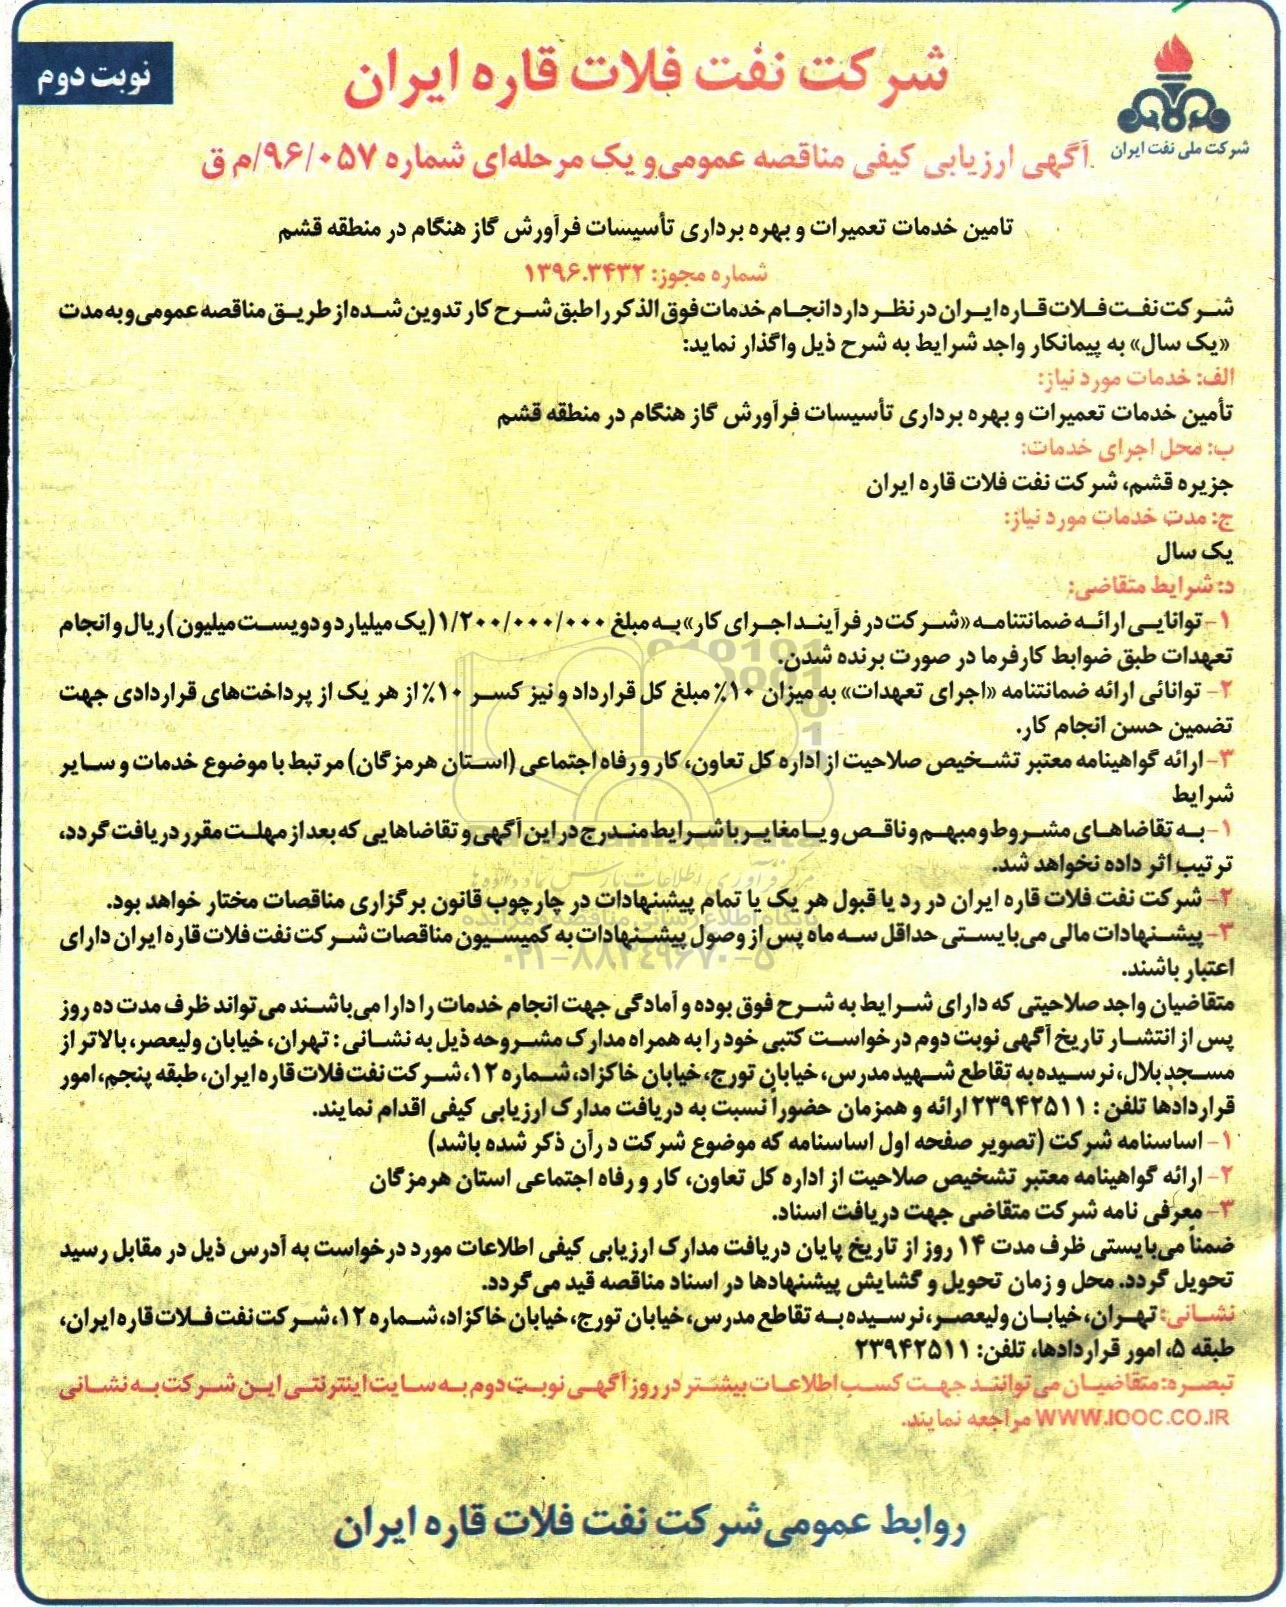 نوبت دوم
شرکت نفت فلات قاره ایران
شرکت ملی نفت ایران
آگهی ارزیابی کیفی مناقصه عمومی و یک مرحله‌ای شماره ۹۶/۰۵۷/م ق
تامین خدمات تعمیرات و بهره برداری تأسیسات فرآورش گاز هنگام در منطقه قشم
شماره مجوز: ۱۳۹۶.۳۴۳۲
شرکت نفت فلات قاره ایران در نظر دارد انجام خدمات فوق الذکر را طبق شرح کار تدوین شده از طریق مناقصه عمومی و به مدت
«یک سال» به پیمانکار واجد شرایط به شرح ذیل واگذار نماید:
الف: خدمات مورد نیاز:
تأمین خدمات تعمیرات و بهره برداری تأسیسات فرآورش گاز هنگام در منطقه قشم
ب: محل اجرای خدمات:
جزیره قشم، شرکت نفت فلات قاره ایران
ج: مدت خدمات مورد نیاز:
یک سال
د: شرایط متقاضی:
۱- توانایی ارائه ضمانتنامه «شرکت در فرآیند اجرای کار» به مبلغ ۱/۲۰۰/۰۰۰/۰۰۰ (یک میلیارد و دویست میلیون) ریال و انجام
تعهدات طبق ضوابط کارفرما در صورت برنده شدن.
۲- توانائی ارائه ضمانتنامه «اجرای تعهدات» به میزان ۱۰٪ مبلغ کل قرارداد و نیز کسر ۱۰٪ از هر یک از پرداخت‌های قراردادی جهت
تضمین حسن انجام کار.
۳- ارائه گواهینامه معتبر تشخیص صلاحیت از اداره کل تعاون، کار و رفاه اجتماعی (استان هرمزگان) مرتبط با موضوع خدمات و سایر
شرایط
۱- به تقاضاهای مشروط و مبهم و ناقص و یا مغایر با شرایط مندرج در این آگهی و تقاضاهایی که بعد از مهلت مقرر دریافت گردد،
ترتیب اثر داده نخواهد شد.
۲- شرکت نفت فلات قاره ایران در رد یا قبول هر یک یا تمام پیشنهادات در چارچوب قانون برگزاری مناقصات مختار خواهد بود.
۳- پیشنهادات مالی می‌بایستی حداقل سه ماه پس از وصول پیشنهادات به کمیسیون مناقصات شرکت نفت فلات قاره ایران دارای
اعتبار باشند.
۰۲۱-۸۸۳۴۹۶۷۰-۵
متقاضیان واجد صلاحیتی که دارای شرایط به شرح فوق بوده و آمادگی جهت انجام خدمات را دارا می‌باشند می‌تواند ظرف مدت ده روز
پس از انتشار تاریخ آگهی نوبت دوم درخواست کتبی خود را به همراه مدارک مشروحه ذیل به نشانی: تهران، خیابان ولیعصر، بالاتر از
مسجد بلال، نرسیده به تقاطع شهید مدرس، خیابان تورج، خیابان خاکزاد، شماره ۱۲، شرکت نفت فلات قاره ایران، طبقه پنجم، امور
قراردادها تلفن: ۲۳۹۴۲۵۱۱ ارائه و همزمان حضوراً نسبت به دریافت مدارک ارزیابی کیفی اقدام نمایند.
۱- اساسنامه شرکت (تصویر صفحه اول اساسنامه که موضوع شرکت در آن ذکر شده باشد)
۲- ارائه گواهینامه معتبر تشخیص صلاحیت از اداره کل تعاون، کار و رفاه اجتماعی استان هرمزگان
۳- معرفی نامه شرکت متقاضی جهت دریافت اسناد.
ضمناً می‌بایستی ظرف مدت ۱۴ روز از تاریخ پایان دریافت مدارک ارزیابی کیفی اطلاعات مورد درخواست به آدرس ذیل در مقابل رسید
تحویل گردد. محل و زمان تحویل و گشایش پیشنهادها در اسناد مناقصه قید می‌گردد.
نشانی: تهران، خیابان ولیعصر، نرسیده به تقاطع مدرس، خیابان تورج، خیابان خاکزاد، شماره ۱۲، شرکت نفت فلات قاره ایران،
طبقه ۵، امور قراردادها، تلفن: ۲۳۹۴۲۵۱۱
تبصره: متقاضیان می توانند جهت کسب اطلاعات بیشتر در روز آگهی نوبت دوم به سایت اینترنتی این شرکت به نشانی
WWW.IOOC.CO.IR مراجعه نمایند.
روابط عمومی شرکت نفت فلات قاره ایران